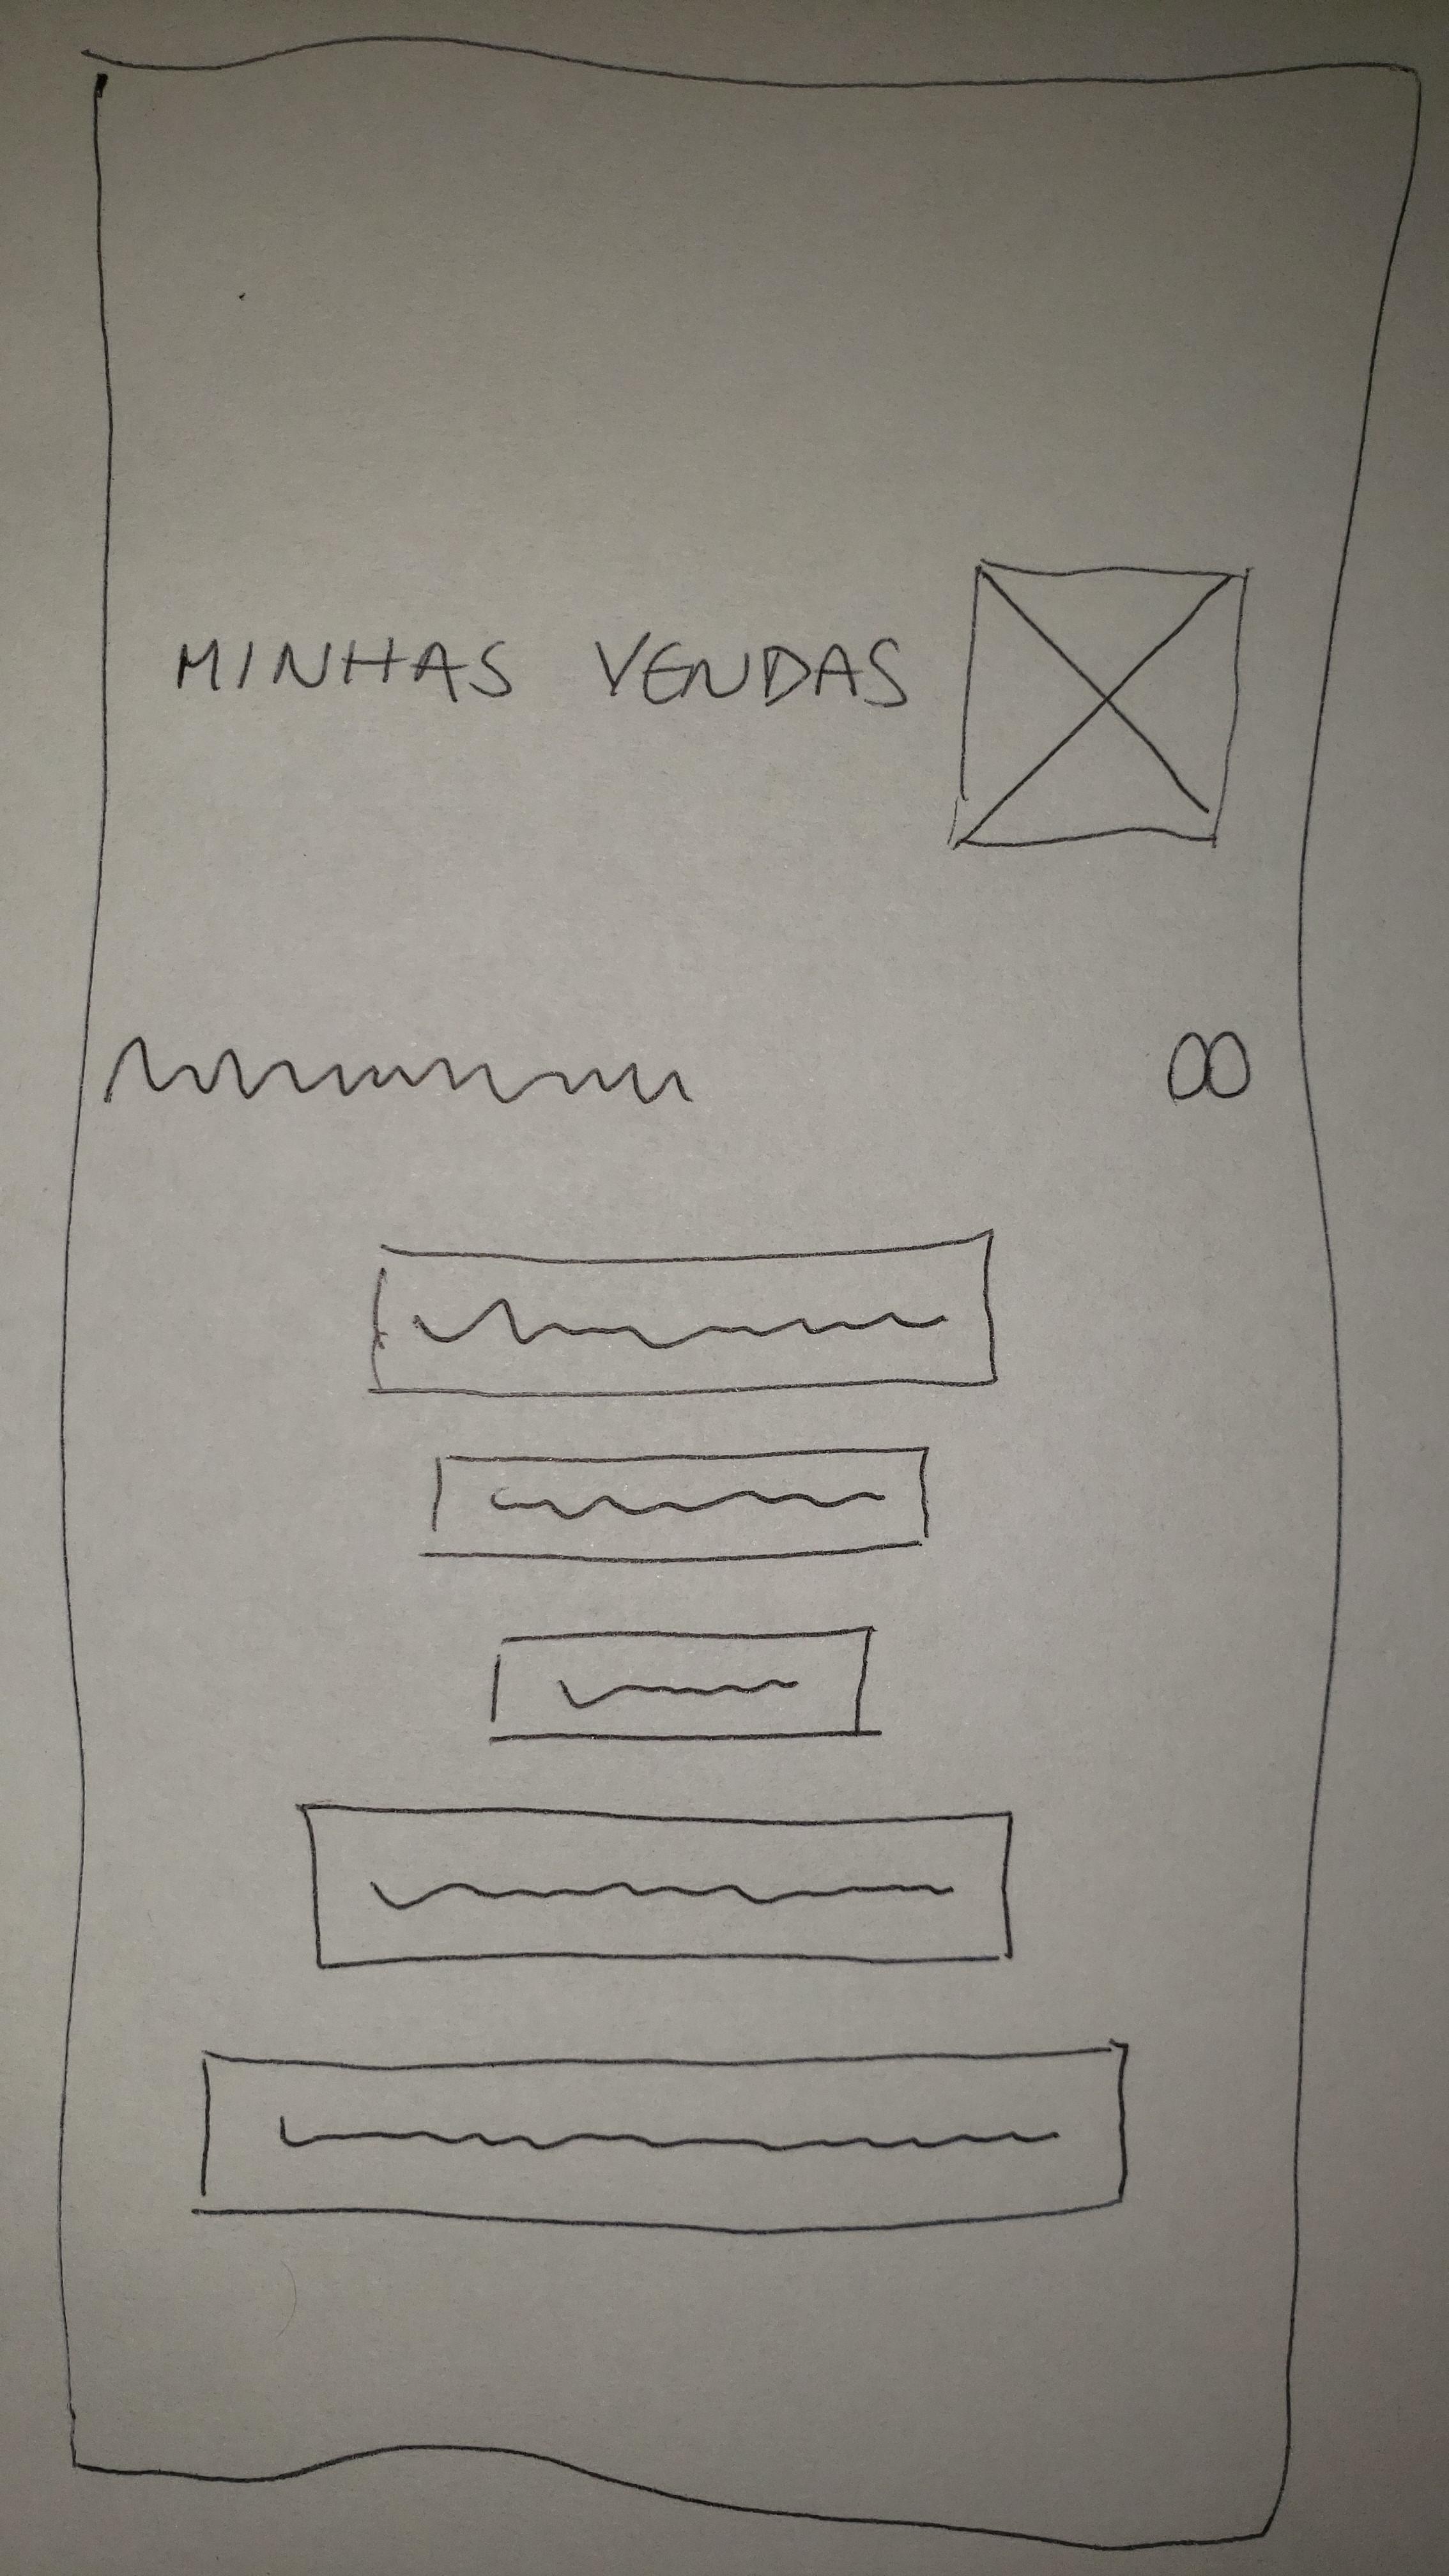 MINHAS VENDAS
00